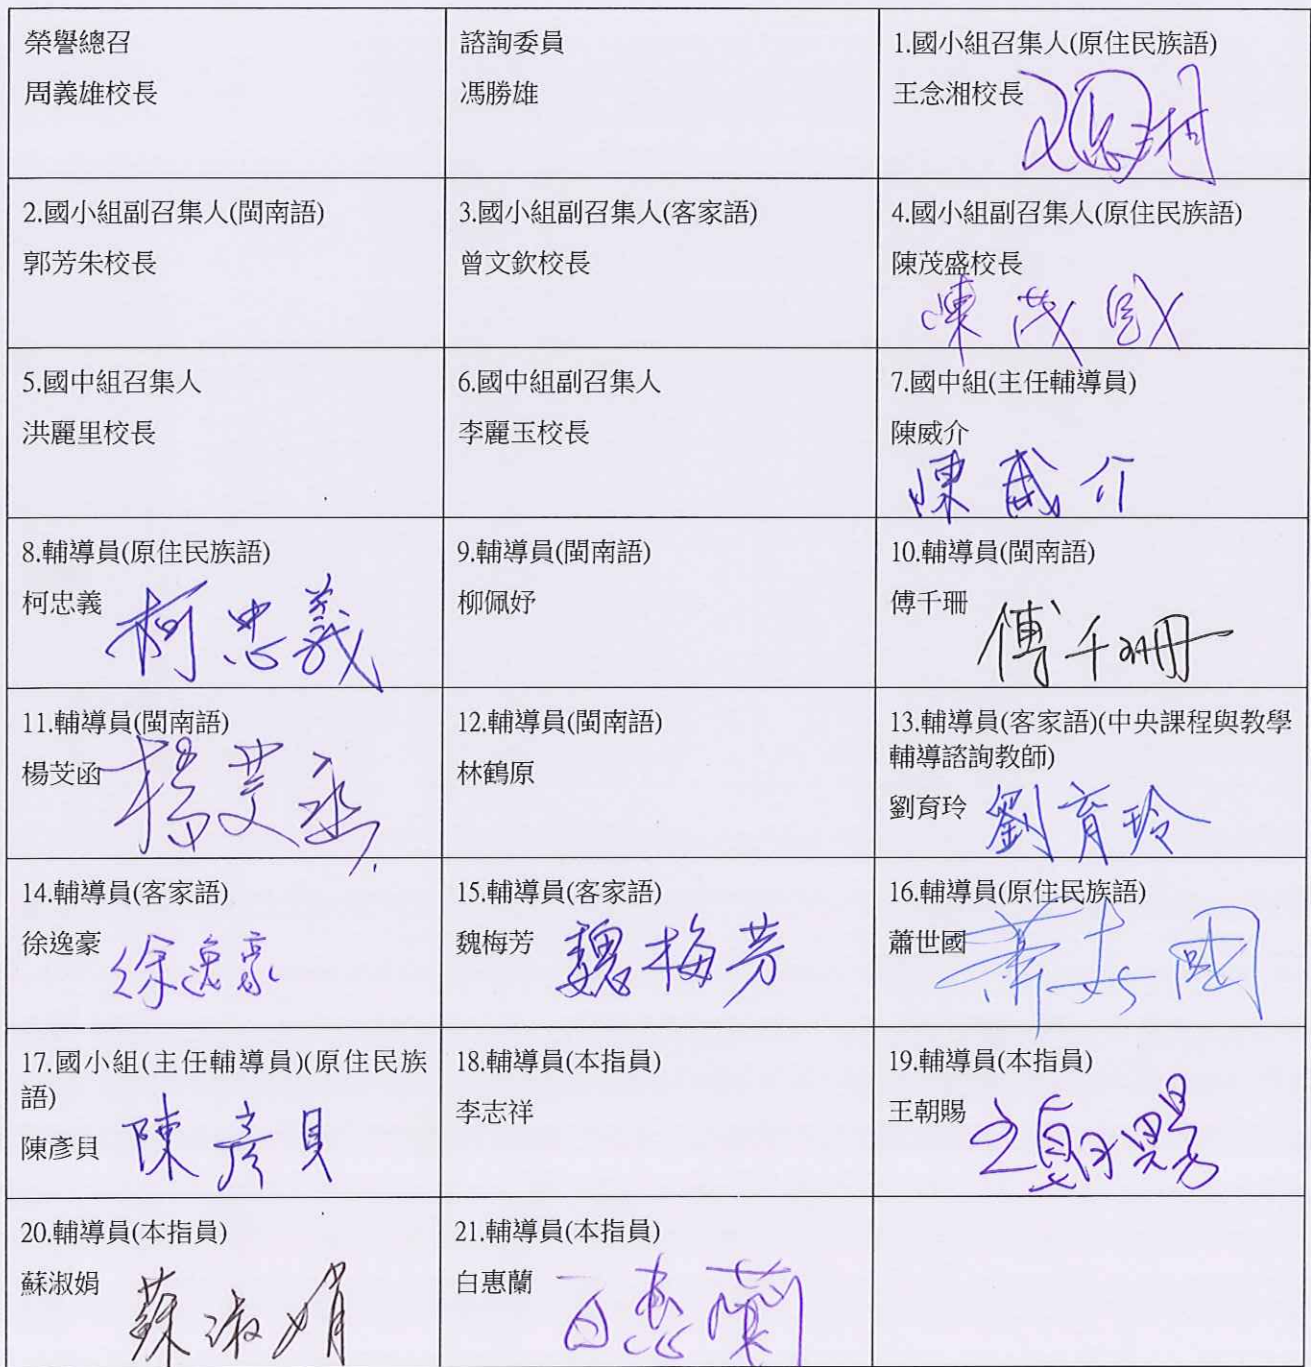 榮譽總召
周義雄校長
諮詢委員
馮勝雄
1.國小組召集人(原住民族語)
王念湘校長
王念湘
2.國小組副召集人(閩南語)
郭芳朱校長
3.國小組副召集人(客家語)
曾文欽校長
4.國小組副召集人(原住民族語)
陳茂盛校長
陳茂盛
5.國中組召集人
洪麗里校長
6.國中組副召集人
李麗玉校長
7.國中組(主任輔導員)
陳威介
陳威介
8.輔導員(原住民族語)
柯忠義
柯忠義
9.輔導員(閩南語)
柳佩妤
10.輔導員(閩南語)
傅千珊
傅千珊
11.輔導員(閩南語)
楊芠函
楊芠函
12.輔導員(閩南語)
林鶴原
13.輔導員(客家語)(中央課程與教學
輔導諮詢教師)
劉育玲
劉育玲
14.輔導員(客家語)
徐逸豪
徐逸豪
15.輔導員(客家語)
魏梅芳
魏梅芳
16.輔導員(原住民族語)
蕭世國
蕭世國
17.國小組(主任輔導員)(原住民族
語)
陳彥貝
陳彥貝
18.輔導員(本指員)
李志祥
19.輔導員(本指員)
王朝賜
王朝賜
20.輔導員(本指員)
蘇淑娟
蘇淑娟
21.輔導員(本指員)
白惠蘭
白惠蘭